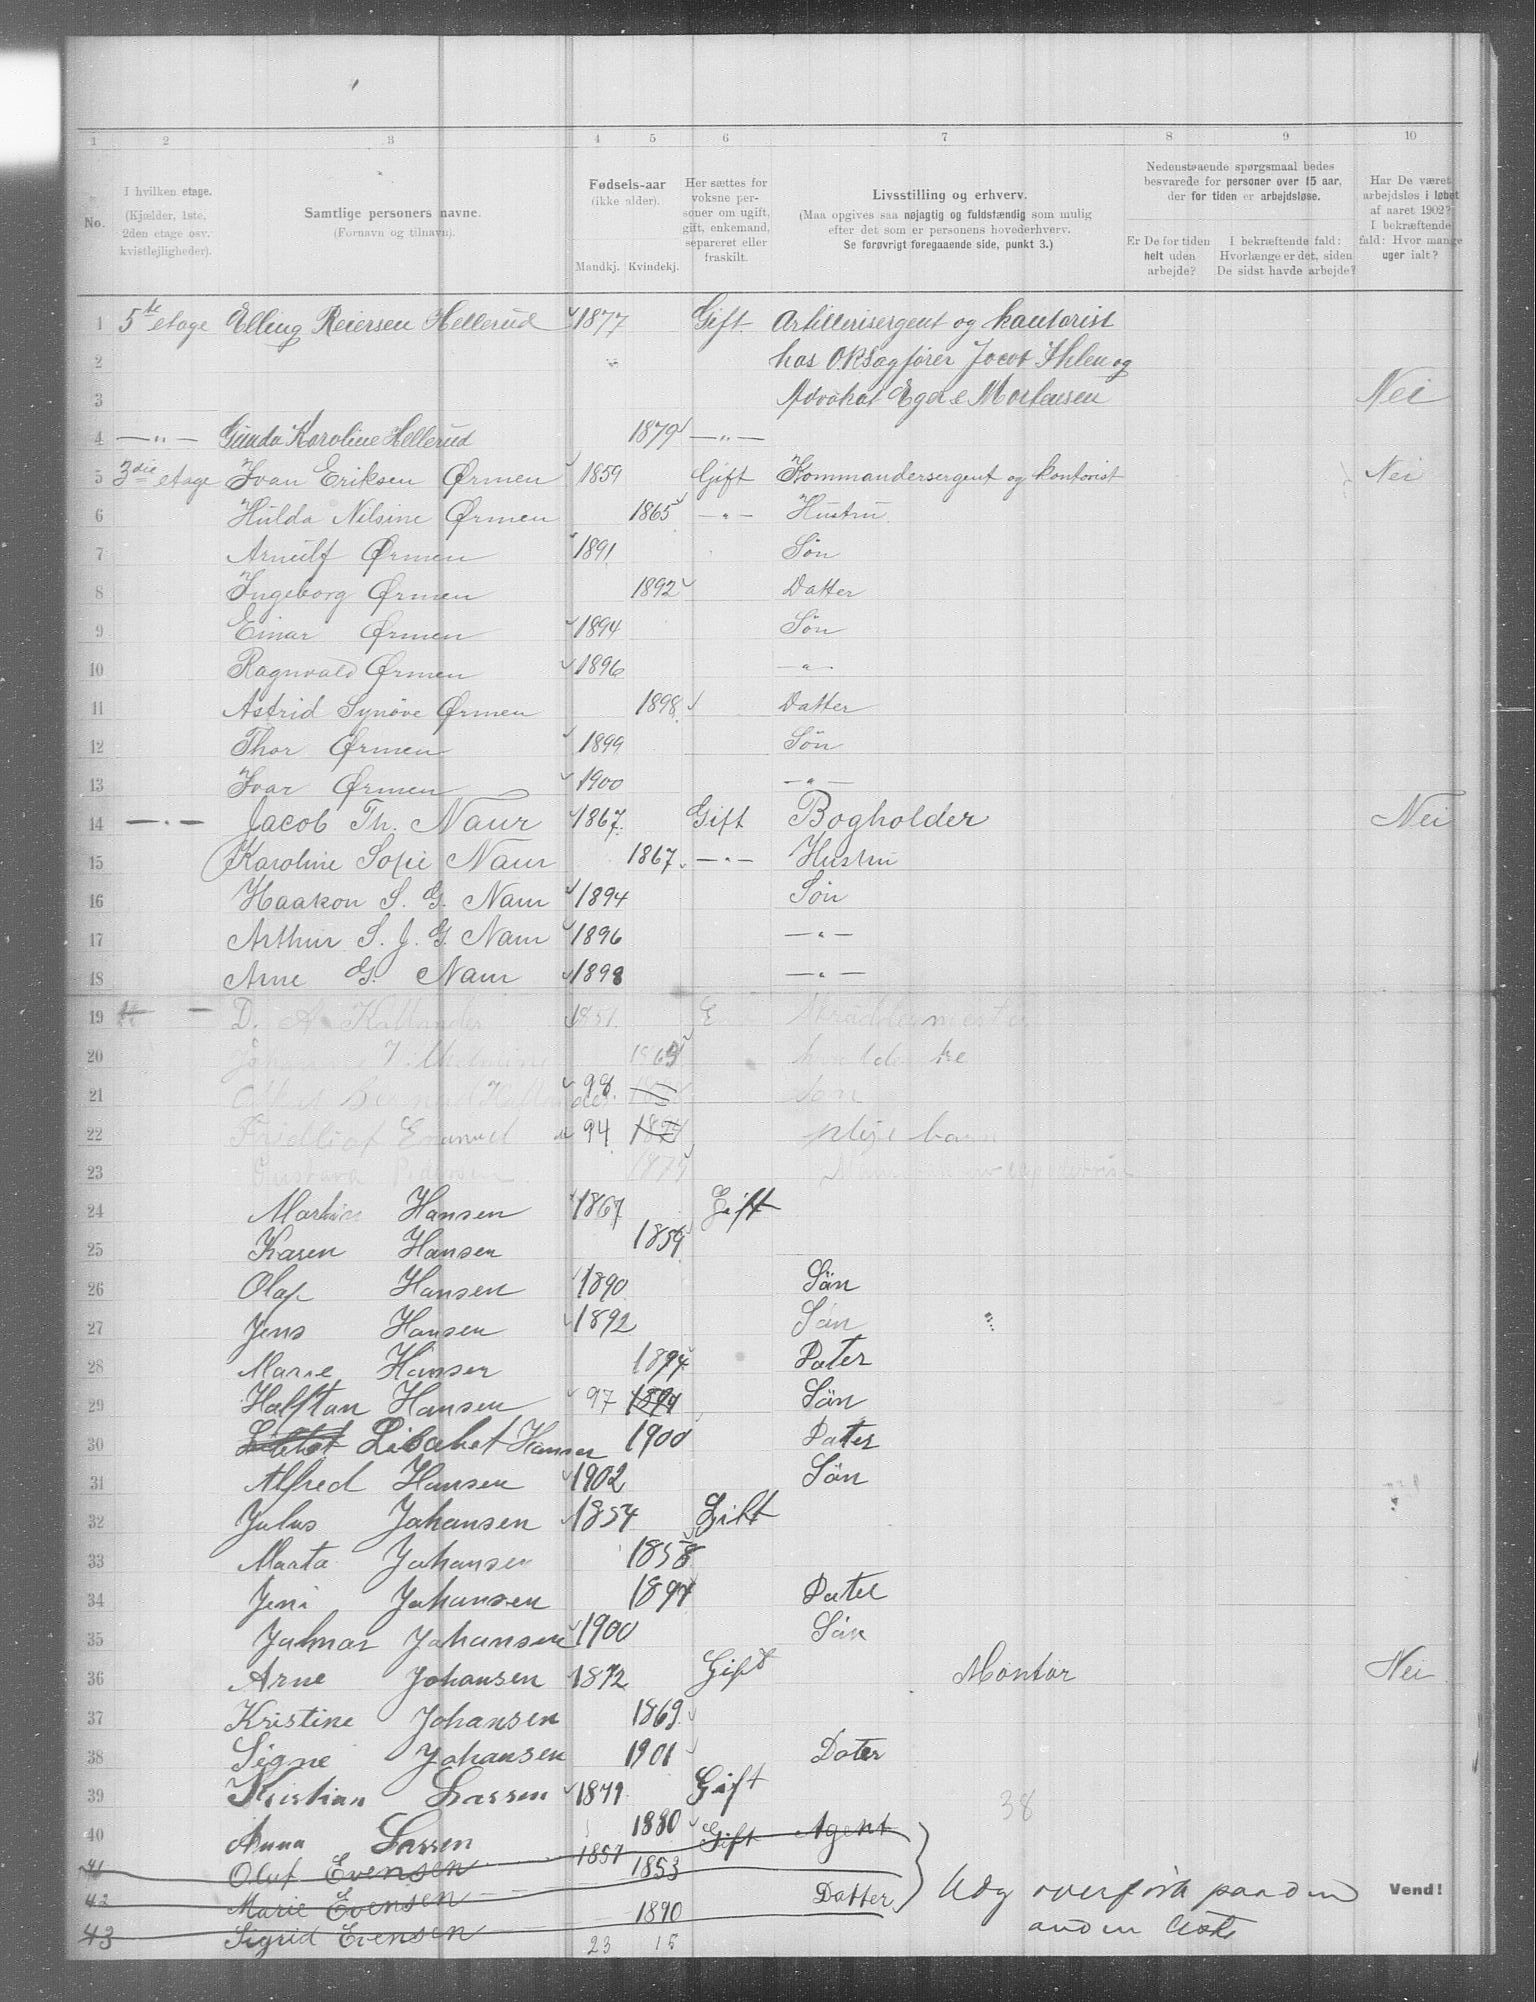 1 2 3 4 5 6 7 8 9 10
No.
I hvilken etage.
(Kjælder, 1ste,
2den etage osv.
kvistlejligheder).
Samtlige personers navne.
(Fornavn og tilnavn).
Fødsels-aar
(ikke alder).
Mandkj. Kvindekj.
Her sættes for
voksne per-
soner om ugift,
gift, enkemand,
separeret eller
fraskilt.
Livsstilling og erhverv.
(Maa opgives saa nøjagtig og fuldstændig som mulig
efter det som er personens hovederhverv.
Se forøvrigt foregaaende side, punkt 3.)
Nedenstaaende spørgsmaal bedes
besvarede for personer over 15 aar,
der for tiden er arbejdsløse.
Er De for tiden
helt uden
arbejde?
I bekræftende fald:
Hvorlænge er det, siden
De sidst havde arbejde?
Har De været
arbejdsløs i løbet
af aaret 1902?
I bekræftende
fald: Hvor mange
uger ialt?
1 5te etage Elling Reiersen Hellerud 1877 Gift Artillerisergent og kontorist
2 hos O.R.Sagfører Jacob Ihlen og
3 Advokat Egde Mortensen Nei
4 —"— Gunda Karoline Hellerud 1879 —"—
5 3die etage Ivan Eriksen Ørmen 1859 Gift Kommandersergent og kontorist Nei
6 Hulda Nilsine Ørmen 1865 —"— Hustru
7 Arnulf Ørmen 1891 Søn
8 Ingeborg Ørmen 1892 Datter
9 Einar Ørmen 1894 Søn
10 Ragnvald Ørmen 1896 —"—
11 Astrid Synøve Ørmen 1898 Datter
12 Thor Ørmen 1899 Søn
13 Ivar Ørmen 1900 —"—
14 —"— Jacob Th. Naur 1867 Gift Bogholder Nei
15 Karoline Sofie Naur 1867 —"— Hustru
16 Haakon S. G. Naur 1894 Søn
17 Arthur S. J. G. Naur 1896 —"—
18 Arne G. Naur 1898 —"—
19 D. A. Kallander 1851 Skræddermester
20 Vilhelmine 1869
21 Bernhard 98 Søn
22 Emanuel 94 pleje barn
23 Gustava Pedersen 1874
24 Martin Hansen 1867 Gift
25 Karen Hansen 1859
26 Olaf Hansen 1890 Sän
27 Jens Hansen 1892 Sän
28 Marie Hansen 1894 Dater
29 Halftan Hansen 97 1894 Sän
30 Lisabet Hansen 1900 Dater
31 Alfred Hansen 1902 Sän
32 Julus Johansen 1854 Gift
33 Marta Johansen 1858
34 Jeni Johansen 1894 Dater
35 Jalmar Johansen 1900 Sän
36 Arne Johansen 1872 Gift Montør Nei
37 Kristine Johansen 1869
38 Signe Johansen 1901 Dater
39 Kristian Larsen 1871 Gift
38
40 Anna Larsen 1880
41 Oluf Evensen 1857 Gift Agent
42 Marie Evensen 1853
43 Sigrid Evensen 1890 Datter
Udg overført paa den
anden liste
Vend!
23 15